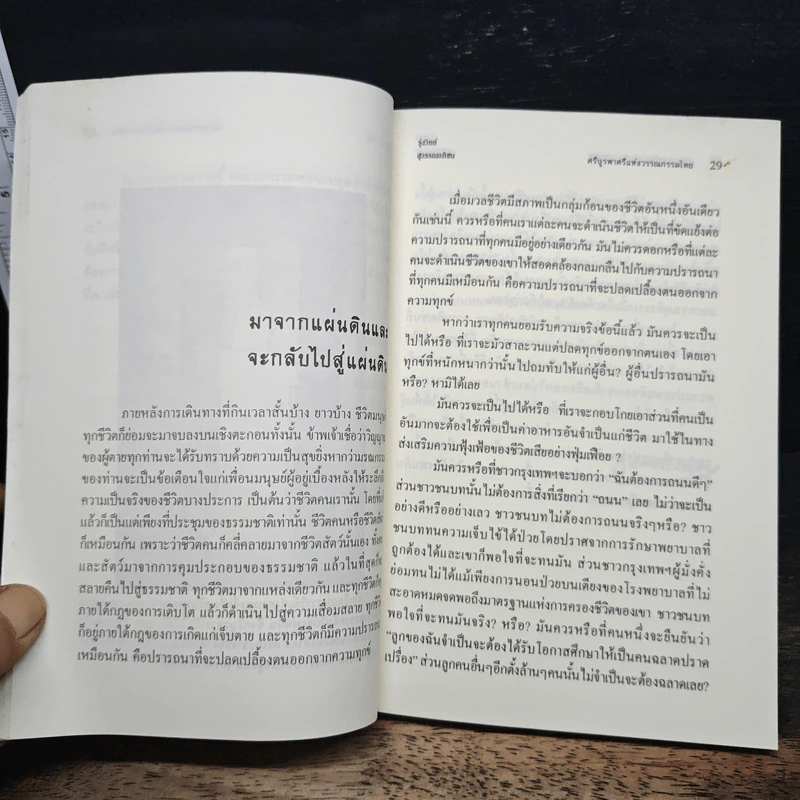 มาจากแผ่นดินและ
จะกลับไปสู่แผ่นดิน
ภายหลังการเดินทางที่กินเวลาสั้นบ้าง ยาวบ้าง ชีวิตมนุษย์
ทุกชีวิตก็ย่อมจะมาจบลงบนเชิงตะกอนทั้งนั้น ข้าพเจ้าเชื่อว่าวิญญาณ
ของผู้ตายทุกท่านจะได้รับทราบด้วยความเป็นสุขยิ่งหากว่ามรณกรรม
ของท่านจะเป็นข้อเตือนใจแก่เพื่อนมนุษย์ผู้อยู่เบื้องหลังให้ระลึกถึง
ความเป็นจริงของชีวิตบางประการ เป็นต้นว่าชีวิตคนเรานั้น โดยที่
แล้วก็เป็นแต่เพียงที่ประชุมของธรรมชาติเท่านั้น ชีวิตคนหรือชีวิตสัตว์
ก็เหมือนกัน เพราะว่าชีวิตคนก็คลี่คลายมาจากชีวิตสัตว์นั้นเอง ทั้งคน
และสัตว์มาจากการคุมประกอบของธรรมชาติ แล้วในที่สุดก็จะ
สลายคืนไปสู่ธรรมชาติ ทุกชีวิตมาจากแหล่งเดียวกัน และทุกชีวิตก็
ภายใต้กฎของการเติบโต แล้วก็ดำเนินไปสู่ความเสื่อมสลาย ทุกชีวิต
ก็อยู่ภายใต้กฎของการเกิดแก่เจ็บตาย และทุกชีวิตก็มีความปรารถนา
เหมือนกัน คือปรารถนาที่จะปลดเปลื้องตนออกจากความทุกข์
รุ่งวิทย์
สุวรรณอภิชน
ศรีบูรพาศรีแห่งวรรณกรรมไทย 29
เมื่อมวลชีวิตมีสภาพเป็นกลุ่มก้อนของชีวิตอันหนึ่งอันเดียว
กันเช่นนี้ ควรหรือที่คนเราแต่ละคนจะดำเนินชีวิตให้เป็นที่ขัดแย้งต่อ
ความปรารถนาที่ทุกคนมีอยู่อย่างเดียวกัน มันไม่ควรดอกหรือที่แต่ละ
คนจะดำเนินชีวิตของเขาให้สอดคล้องกลมกลืนไปกับความปรารถนา
ที่ทุกคนมีเหมือนกัน คือความปรารถนาที่จะปลดเปลื้องตนออกจาก
ความทุกข์
หากว่าเราทุกคนยอมรับความจริงข้อนี้แล้ว มันควรจะเป็น
ไปได้หรือ ที่เราจะมัวสาละวนแต่ปลดทุกข์ออกจากตนเอง โดยเอา
ทุกข์ที่หนักหนากว่านั้นไปถมทับให้แก่ผู้อื่น? ผู้อื่นปรารถนามัน
หรือ? หามิได้เลย
มันควรจะเป็นไปได้หรือ ที่เราจะกอบโกยเอาส่วนที่คนเป็น
อันมากจะต้องใช้เพื่อเป็นค่าอาหารอันจำเป็นแก่ชีวิต มาใช้ในทาง
ส่งเสริมความฟุ้งเฟ้อของชีวิตเสียอย่างฟุ่มเฟือย ?
มันควรหรือที่ชาวกรุงเทพฯจะบอกว่า “ฉันต้องการถนนดีๆ”
ส่วนชาวชนบทนั้นไม่ต้องการสิ่งที่เรียกว่า “ถนน” เลย ไม่ว่าจะเป็น
อย่างดีหรืออย่างเลว ชาวชนบทไม่ต้องการถนนจริงๆหรือ? ชาว
ชนบททนความเจ็บไข้ได้ป่วยโดยปราศจากการรักษาพยาบาลที่
ถูกต้องได้และเขาก็พอใจที่จะทนมัน ส่วนชาวกรุงเทพฯผู้มั่งคั่ง
ย่อมทนไม่ได้แม้เพียงการนอนป่วยบนเตียงของโรงพยาบาลที่ไม่
สะอาดหมดจดพอถึงมาตรฐานแห่งการครองชีวิตของเขา ชาวชนบท
พอใจที่จะทนมันจริง? หรือ? มันควรหรือที่คนหนึ่งจะยืนยันว่า
“ลูกของฉันจำเป็นจะต้องได้รับโอกาสศึกษาให้เป็นคนฉลาดปราด
เปรื่อง” ส่วนลูกคนอื่นๆอีกตั้งล้านๆคนนั้นไม่จำเป็นจะต้องฉลาดเลย?